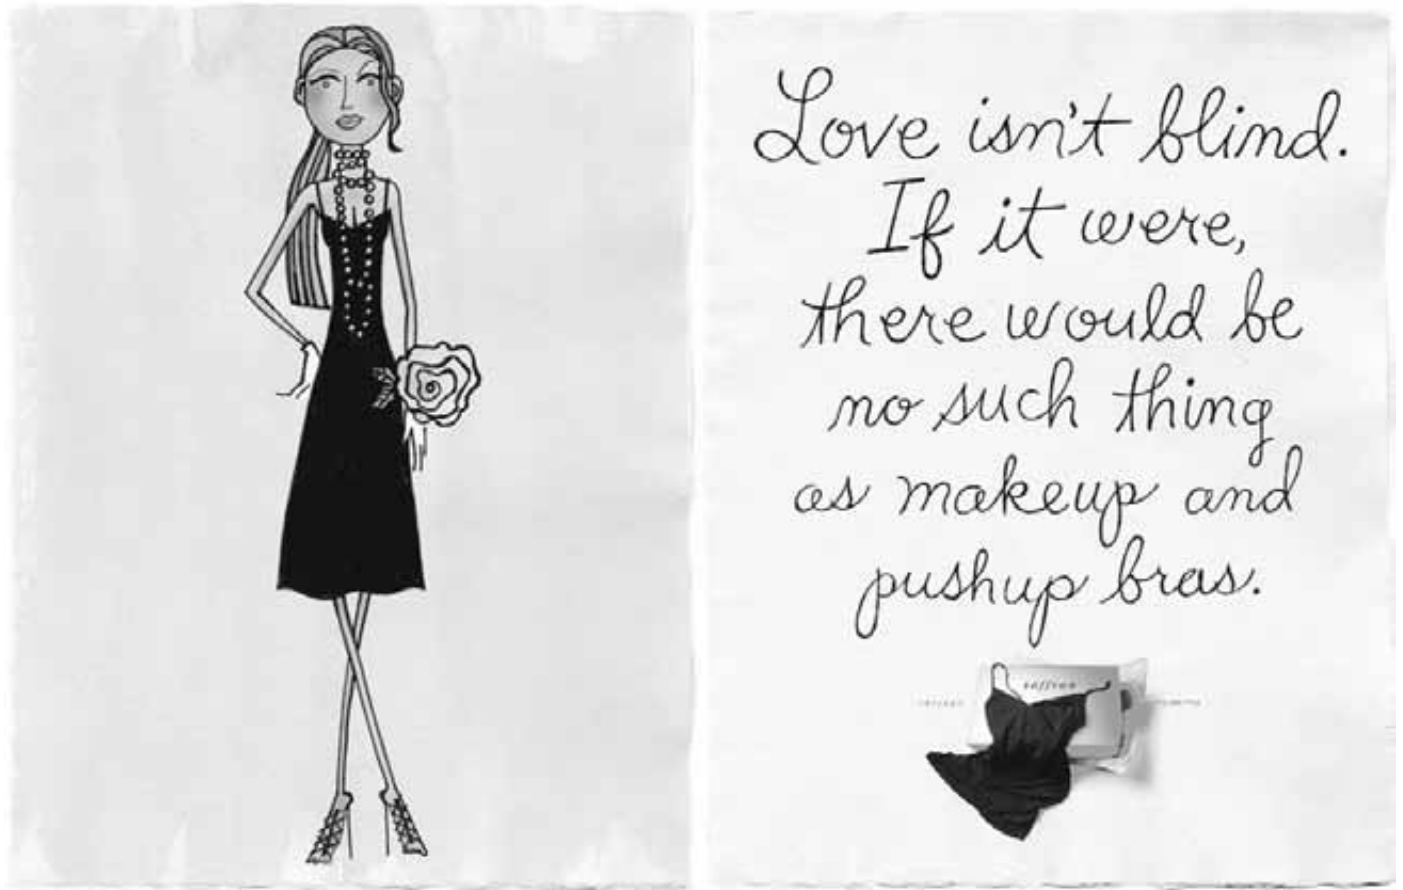 Love isn't blind.
If it were,
there would be
no such thing
as makeup and
pushup bras.
saffron